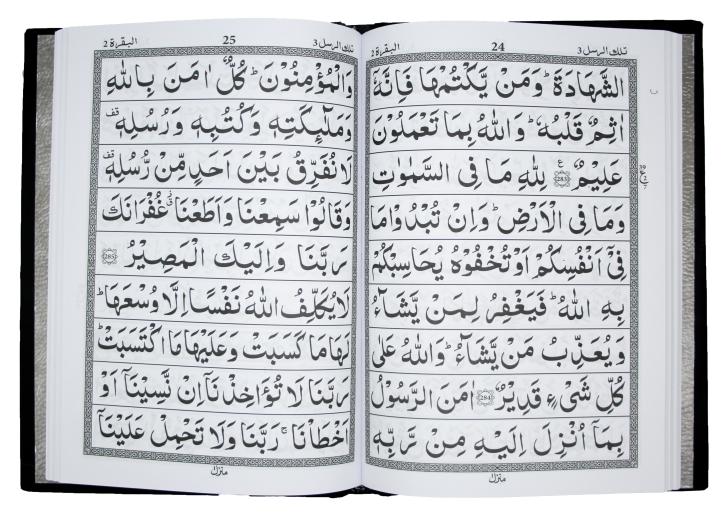 تلك الرسل 3 24 البقرة 2
الشَّهَادَةَ ؕ وَمَنْ يَّكْتُمْهَا فَاِنَّهٗۤ
اٰثِمٌ قَلْبُهٗ ؕ وَاللّٰهُ بِمَا تَعْمَلُوْنَ
عَلِيْمٌ ﴿283﴾ لِلّٰهِ مَا فِى السَّمٰوٰتِ
وَمَا فِى الْاَرْضِ ؕ وَاِنْ تُبْدُوْا مَا
فِىْۤ اَنْفُسِكُمْ اَوْ تُخْفُوْهُ يُحَاسِبْكُمْ
بِهِ اللّٰهُ ؕ فَيَغْفِرُ لِمَنْ يَّشَآءُ
وَيُعَذِّبُ مَنْ يَّشَآءُ ؕ وَاللّٰهُ عَلٰى
كُلِّ شَىْءٍ قَدِيْرٌ ﴿284﴾ اٰمَنَ الرَّسُوْلُ
بِمَاۤ اُنْزِلَ اِلَيْهِ مِنْ رَّبِّهٖ
منزل
تلك الرسل 3 25 البقرة 2
وَالْمُؤْمِنُوْنَ ؕ كُلٌّ اٰمَنَ بِاللّٰهِ
وَمَلٰٓئِكَتِهٖ وَكُتُبِهٖ وَرُسُلِهٖ قف
لَا نُفَرِّقُ بَيْنَ اَحَدٍ مِّنْ رُّسُلِهٖ قف
وَقَالُوْا سَمِعْنَا وَاَطَعْنَا غُفْرَانَكَ
رَبَّنَا وَاِلَيْكَ الْمَصِيْرُ ﴿285﴾
لَا يُكَلِّفُ اللّٰهُ نَفْسًا اِلَّا وُسْعَهَا ؕ
لَهَا مَا كَسَبَتْ وَعَلَيْهَا مَا اكْتَسَبَتْ ؕ
رَبَّنَا لَا تُؤَاخِذْنَاۤ اِنْ نَّسِيْنَاۤ اَوْ
اَخْطَاْنَا ۚ رَبَّنَا وَلَا تَحْمِلْ عَلَيْنَاۤ
منزل